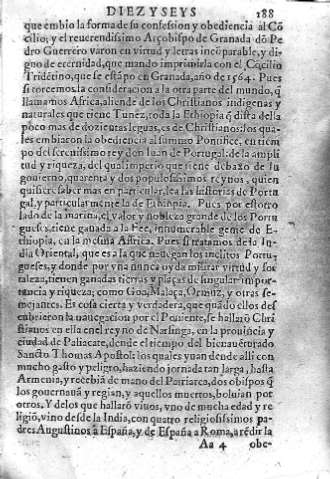 DIEZ Y SEYS 188
que embio la forma de su confesion y obediencia al Cō
cilio; y el reuerendissimo Arçobispo de Granada dō Pe
dro Guerrero varon en virtud y letras incōparable, y di
gno de eternidad, que mando imprimir con el Cōcilio
Tridētino, que se estāpo en Granada, año de 1564. Pues
si torcemos la consideracion a la otra parte del mundo, q̄
llamamos Africa, aliende de los Christianos indigenas y
naturales que tiene Tunez, toda la Ethiopia q̄ dista della
poco mas de dozientas leguas, es de Christianos: los qua
les embiaron la obediencia al summo Pontifice, en tiem
po del serenissimo rey don Iuan de Portugal: de la ampli
tud y riqueza, del qual imperio que tiene debaxo de su
gouierno, quarenta y dos populosissimos reynos, quien
quisiere saber mas en particular, lea las historias de Portu
gal, y particularmente la de Ethiopia. Pues por estotro
lado de la marina, el valor y nobleza grande de los Portu
gueses, tiene ganada a la Fee, innumerable gente de E-
thiopia, en la mesma Africa. Pues si tratamos de la In-
dia Oriental, que es a la que nauegan los inclitos Portu-
gueses, y donde por vna nunca oyda militar virtud y for
taleza, tienen ganadas tierras y plaças de singular impor-
tancia y riqueza: como Goa, Malaça, Ormuz, y otras se-
mejantes. Es cosa cierta y verdadera, que quādo ellos des
cubrieron la nauegacion por el Poniente, se hallarō Chri
stianos en ella en el reyno de Narsinga, en la prouincia y
ciudad de Paliacate, desde el tiempo del bienauēturado
Sancto Thomas Apostol: los quales yuan desde alli con
mucho gasto y peligro, haziendo jornada tan larga, hasta
Armenia, y recebiā de mano del Patriarca, dos obispos q̄
los gouernauā y regian, y aquellos muertos, boluian por
otros. Y delos que hallarō viuos, vno de mucha edad y re
ligiō, vino desde la India, con quatro religiosissimos pa-
dres Augustinos a España, y de España a Roma, a rēdir la
Aa 4 obe-